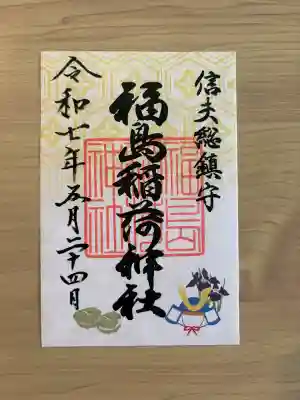 信夫総鎮守
福島稲荷神社
令和七年五月二十四日